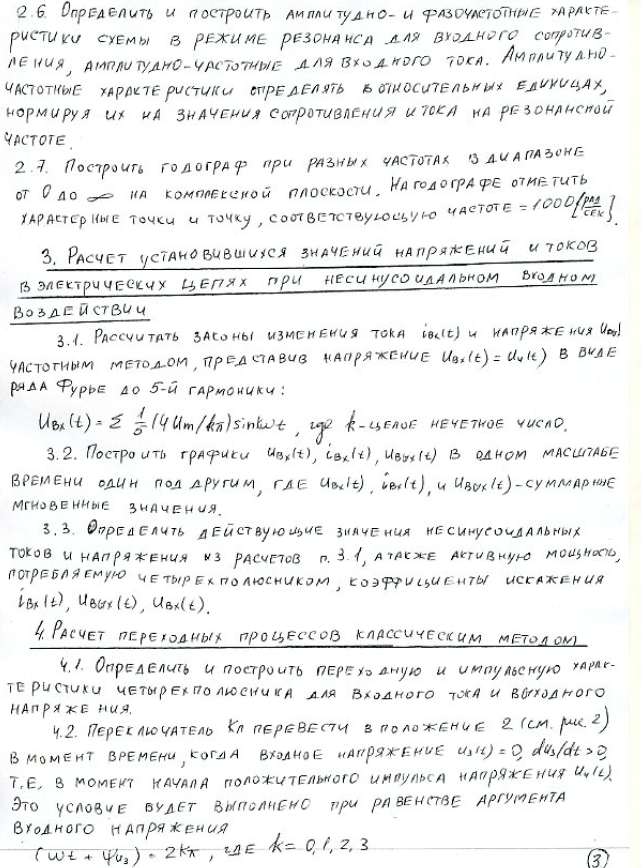 2.6. Определить и построить амплитудно- и фазочастотные характе-
ристики схемы в режиме резонанса для входного сопротив-
ления, амплитудно-частотные для входного тока. Амплитудно-
частотные характеристики определять в относительных единицах,
нормируя их на значения сопротивления и тока на резонансной
частоте.
2.7. Построить годограф при разных частотах в диапазоне
от 0 до ∞ на комплексной плоскости. На годографе отметить
характерные точки и точку, соответствующую частоте = 1000 [рад/сек].
3. Расчет установившихся значений напряжений и токов
в электрических цепях при несинусоидальном входном
воздействии
3.1. Рассчитать законы изменения тока iвх(t) и напряжения
частотным методом, представив напряжение Uвх(t) = U4(t) в виде
ряда Фурье до 5-й гармоники:
Uвх(t) = Σ 1/5 (4Um/kπ) sinkωt, где k-целое нечетное число.
3.2. Построить графики Uвх(t), iвх(t), Uвых(t) в одном масштабе
времени один под другим, где Uвх(t), iвх(t), и Uвых(t) - суммарные
мгновенные значения.
3.3. Определить действующие значения несинусоидальных
токов и напряжения из расчетов п. 3.1, а также активную мощность,
потребляемую четырехполюсником, коэффициенты искажения
iвх(t), Uвых(t), Uвх(t).
4. Расчет переходных процессов классическим методом
4.1. Определить и построить переходную и импульсную харак-
теристики четырехполюсника для входного тока и выходного
напряжения.
4.2. Переключатель Кл перевести в положение 2 (см. рис. 2)
в момент времени, когда входное напряжение u3(t) = 0, du3/dt > 0,
т.е. в момент начала положительного импульса напряжения U4(t).
Это условие будет выполнено при равенстве аргумента
входного напряжения
(ωt + ψu3) = 2kπ, где k = 0, 1, 2, 3
3